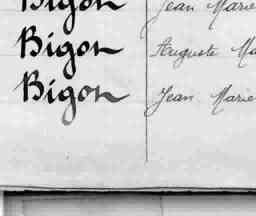 Bigon Jean Marie
Bigon Auguste Ma
Bigon Jean Marie